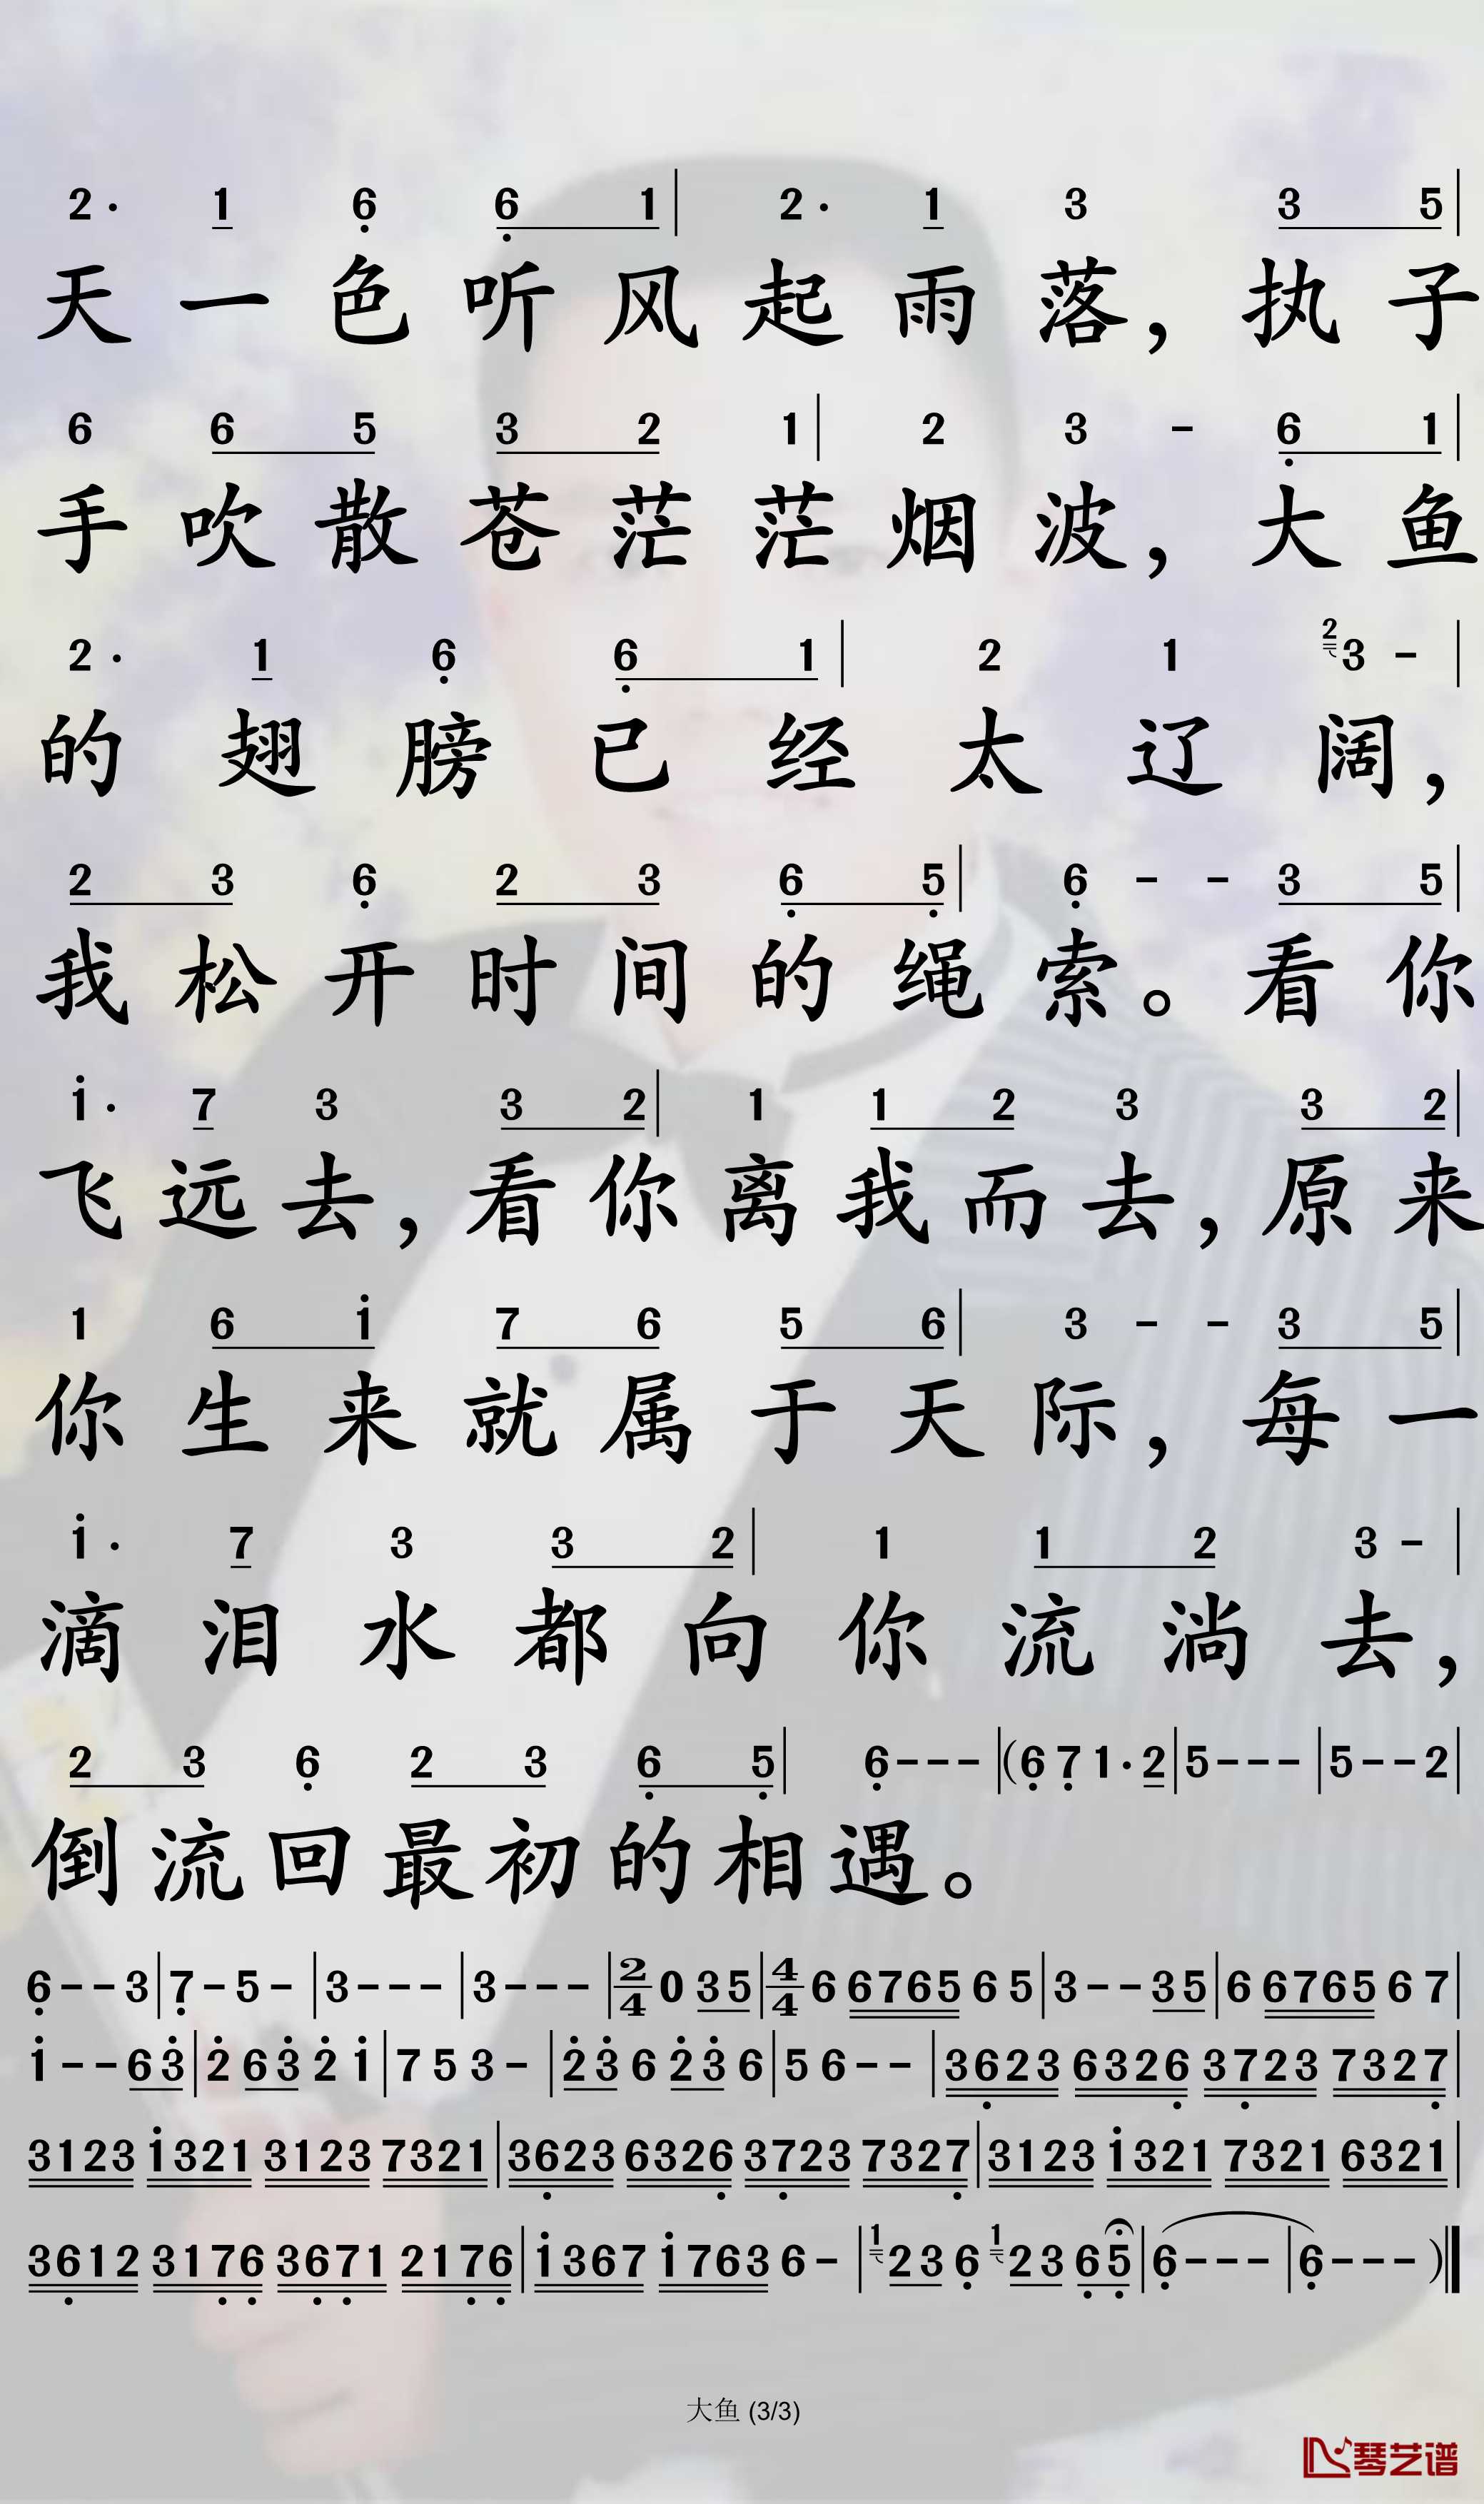 2· 1 6 6 1 | 2· 1 3 3 5 |
天一色听风起雨落，执子
6 6 5 3 2 1 | 2 3 - 6 1 |
手吹散苍茫茫烟波，大鱼
2· 1 6 6 1 | 2 1 2 3 - |
的翅膀已经太辽阔，
2 3 6 2 3 6 5 | 6 - - 3 5 |
我松开时间的绳索。看你
i· 7 3 3 2 | 1 1 2 3 3 2 |
飞远去，看你离我而去，原来
1 6 i 7 6 5 6 | 3 - - 3 5 |
你生来就属于天际，每一
i· 7 3 3 2 | 1 1 2 3 - |
滴泪水都向你流淌去，
2 3 6 2 3 6 5 | 6 - - - | (6 7 1· 2 | 5 - - - | 5 - - 2 |
倒流回最初的相遇。
6 - - 3 | 7 - 5 - | 3 - - - | 3 - - - | 2/4 0 3 5 | 4/4 6 6765 6 5 | 3 - - 3 5 | 6 6765 6 7 |
i - - 6 3 | 2 6 3 2 i | 7 5 3 - | 2 3 6 2 3 6 | 5 6 - - | 3623 6326 3723 7327 |
3123 i321 3123 7321 | 3623 6326 3723 7327 | 3123 i321 7321 6321 |
3612 3176 3671 2176 | i367 i763 6 - | 1 2 3 6 1 2 3 6 5 | 6 - - - | 6 - - - )‖
大鱼 (3/3)
琴艺谱